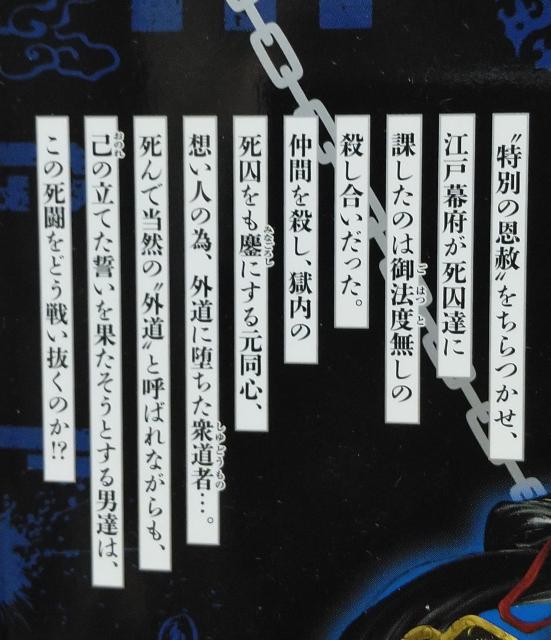 〝特別の恩赦〟をちらつかせ、
江戸幕府が死囚達に
課したのは御法度無しの
殺し合いだった。
仲間を殺し、獄内の
死囚をも鏖にする元同心、
想い人の為、外道に堕ちた衆道者…。
死んで当然の〝外道〟と呼ばれながらも、
己の立てた誓いを果たそうとする男達は、
この死闘をどう戦い抜くのか!?